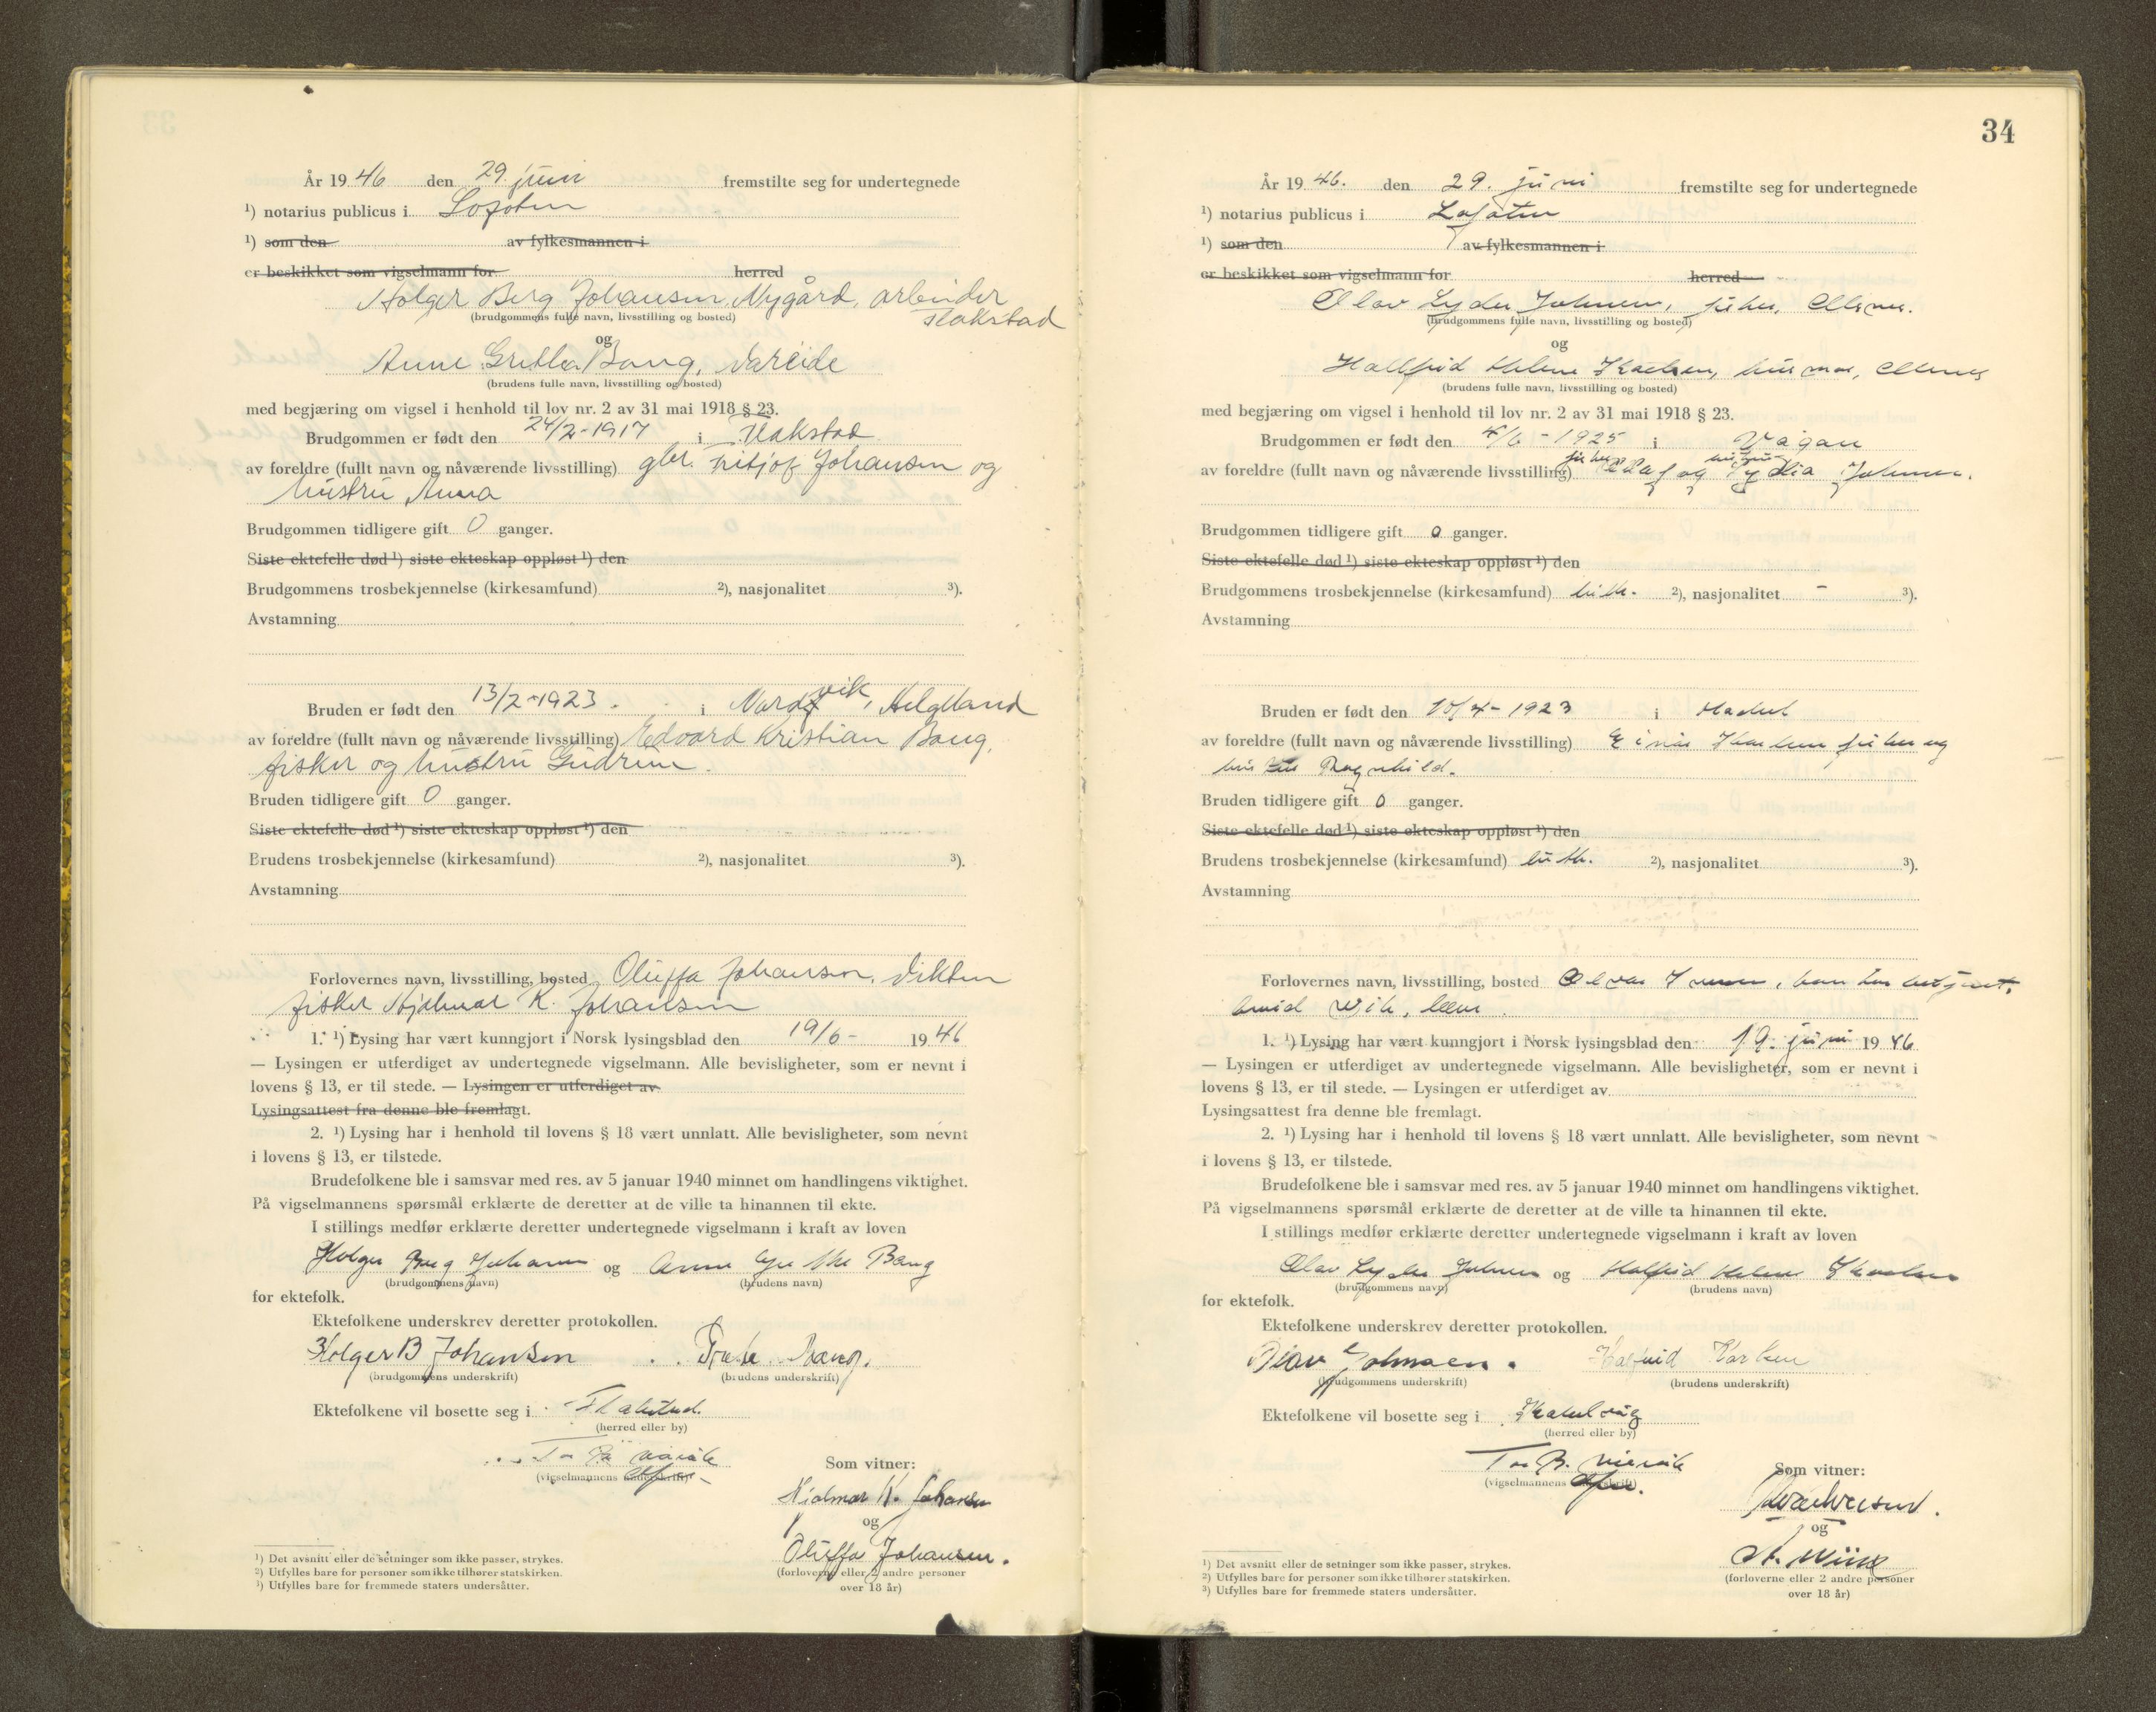 År 1946 den 29. juni fremstilte seg for undertegnede
¹) notarius publicus i Lofoten
¹) som den av fylkesmannen i
er beskikket som vigselmann for herred
Holger Berg Johansen, Nygård, arbeider
Flakstad
(brudgommens fulle navn, livsstilling og bosted)
og
Anne Grethe Bang, Vareide
(brudens fulle navn, livsstilling og bosted)
med begjæring om vigsel i henhold til lov nr. 2 av 31 mai 1918 § 23.
Brudgommen er født den 24/2-1917 i Flakstad
av foreldre (fullt navn og nåværende livsstilling) gbr. Fritjof Johansen og
hustru Anna
Brudgommen tidligere gift 0 ganger.
Siste ektefelle død ¹) siste ekteskap oppløst ¹) den
Brudgommens trosbekjennelse (kirkesamfund) ²), nasjonalitet ³).
Avstamning
Bruden er født den 13/2-1923. i Nordvik, Helgeland
av foreldre (fullt navn og nåværende livsstilling) Edvard Kristian Bang,
fisker og hustru Gudrun.
Bruden tidligere gift 0 ganger.
Siste ektefelle død ¹) siste ekteskap oppløst ¹) den
Brudens trosbekjennelse (kirkesamfund) ²), nasjonalitet ³).
Avstamning
Forlovernes navn, livsstilling, bosted Oluffa Johansen, Vikten
fisker Hjalmar K. Johansen
1. ¹) Lysing har vært kunngjort i Norsk lysingsblad den 19/6- 1946
— Lysingen er utferdiget av undertegnede vigselmann. Alle bevisligheter, som er nevnt i
lovens § 13, er til stede. — Lysingen er utferdiget av
Lysingsattest fra denne ble fremlagt.
2. ¹) Lysing har i henhold til lovens § 18 vært unnlatt. Alle bevisligheter, som nevnt
i lovens § 13, er tilstede.
Brudefolkene ble i samsvar med res. av 5 januar 1940 minnet om handlingens viktighet.
På vigselmannens spørsmål erklærte de deretter at de ville ta hinannen til ekte.
I stillings medfør erklærte deretter undertegnede vigselmann i kraft av loven
Holger Berg Johansen og Anne Grethe Bang
(brudgommens navn) (brudens navn)
for ektefolk.
Ektefolkene underskrev deretter protokollen.
Holger B Johansen Grete Bang.
(brudgommens underskrift) (brudens underskrift)
Ektefolkene vil bosette seg i Flakstad.
(herred eller by)
(vigselmannens underskrift)
Som vitner:
Hjalmar K. Johansen
og
Oluffa Johansen.
(forloverne eller 2 andre personer
over 18 år)
¹) Det avsnitt eller de setninger som ikke passer, strykes.
²) Utfylles bare for personer som ikke tilhører statskirken.
³) Utfylles bare for fremmede staters undersåtter.
34
År 1946. den 29. juni fremstilte seg for undertegnede
¹) notarius publicus i Lofoten
¹) som den av fylkesmannen i
er beskikket som vigselmann for herred
Olav Lyder Johnsen, fisker,
(brudgommens fulle navn, livsstilling og bosted)
og
Hallfrid Helene Karlsen,
(brudens fulle navn, livsstilling og bosted)
med begjæring om vigsel i henhold til lov nr. 2 av 31 mai 1918 § 23.
Brudgommen er født den 4/6-1925 i Vågan
av foreldre (fullt navn og nåværende livsstilling) fisker Olaf og hustru Lydia Johnsen.
Brudgommen tidligere gift 0 ganger.
Siste ektefelle død ¹) siste ekteskap oppløst ¹) den
Brudgommens trosbekjennelse (kirkesamfund) luth. ²), nasjonalitet - ³).
Avstamning
Bruden er født den 10/4-1923 i Hadsel
av foreldre (fullt navn og nåværende livsstilling) Einar Karlsen fisker og
hustru Ragnhild.
Bruden tidligere gift 0 ganger.
Siste ektefelle død ¹) siste ekteskap oppløst ¹) den
Brudens trosbekjennelse (kirkesamfund) luth. ²), nasjonalitet ³).
Avstamning
Forlovernes navn, livsstilling, bosted
1. ¹) Lysing har vært kunngjort i Norsk lysingsblad den 19. juni 1946
— Lysingen er utferdiget av undertegnede vigselmann. Alle bevisligheter, som er nevnt i
lovens § 13, er til stede. — Lysingen er utferdiget av
Lysingsattest fra denne ble fremlagt.
2. ¹) Lysing har i henhold til lovens § 18 vært unnlatt. Alle bevisligheter, som nevnt
i lovens § 13, er tilstede.
Brudefolkene ble i samsvar med res. av 5 januar 1940 minnet om handlingens viktighet.
På vigselmannens spørsmål erklærte de deretter at de ville ta hinannen til ekte.
I stillings medfør erklærte deretter undertegnede vigselmann i kraft av loven
Olav Lyder Johnsen og Halfrid Helene Karlsen
(brudgommens navn) (brudens navn)
for ektefolk.
Ektefolkene underskrev deretter protokollen.
Olav Johnsen. Halfrid Karlsen
(brudgommens underskrift) (brudens underskrift)
Ektefolkene vil bosette seg i
(herred eller by)
(vigselmannens underskrift)
Som vitner:
og
(forloverne eller 2 andre personer
over 18 år)
¹) Det avsnitt eller de setninger som ikke passer, strykes.
²) Utfylles bare for personer som ikke tilhører statskirken.
³) Utfylles bare for fremmede staters undersåtter.